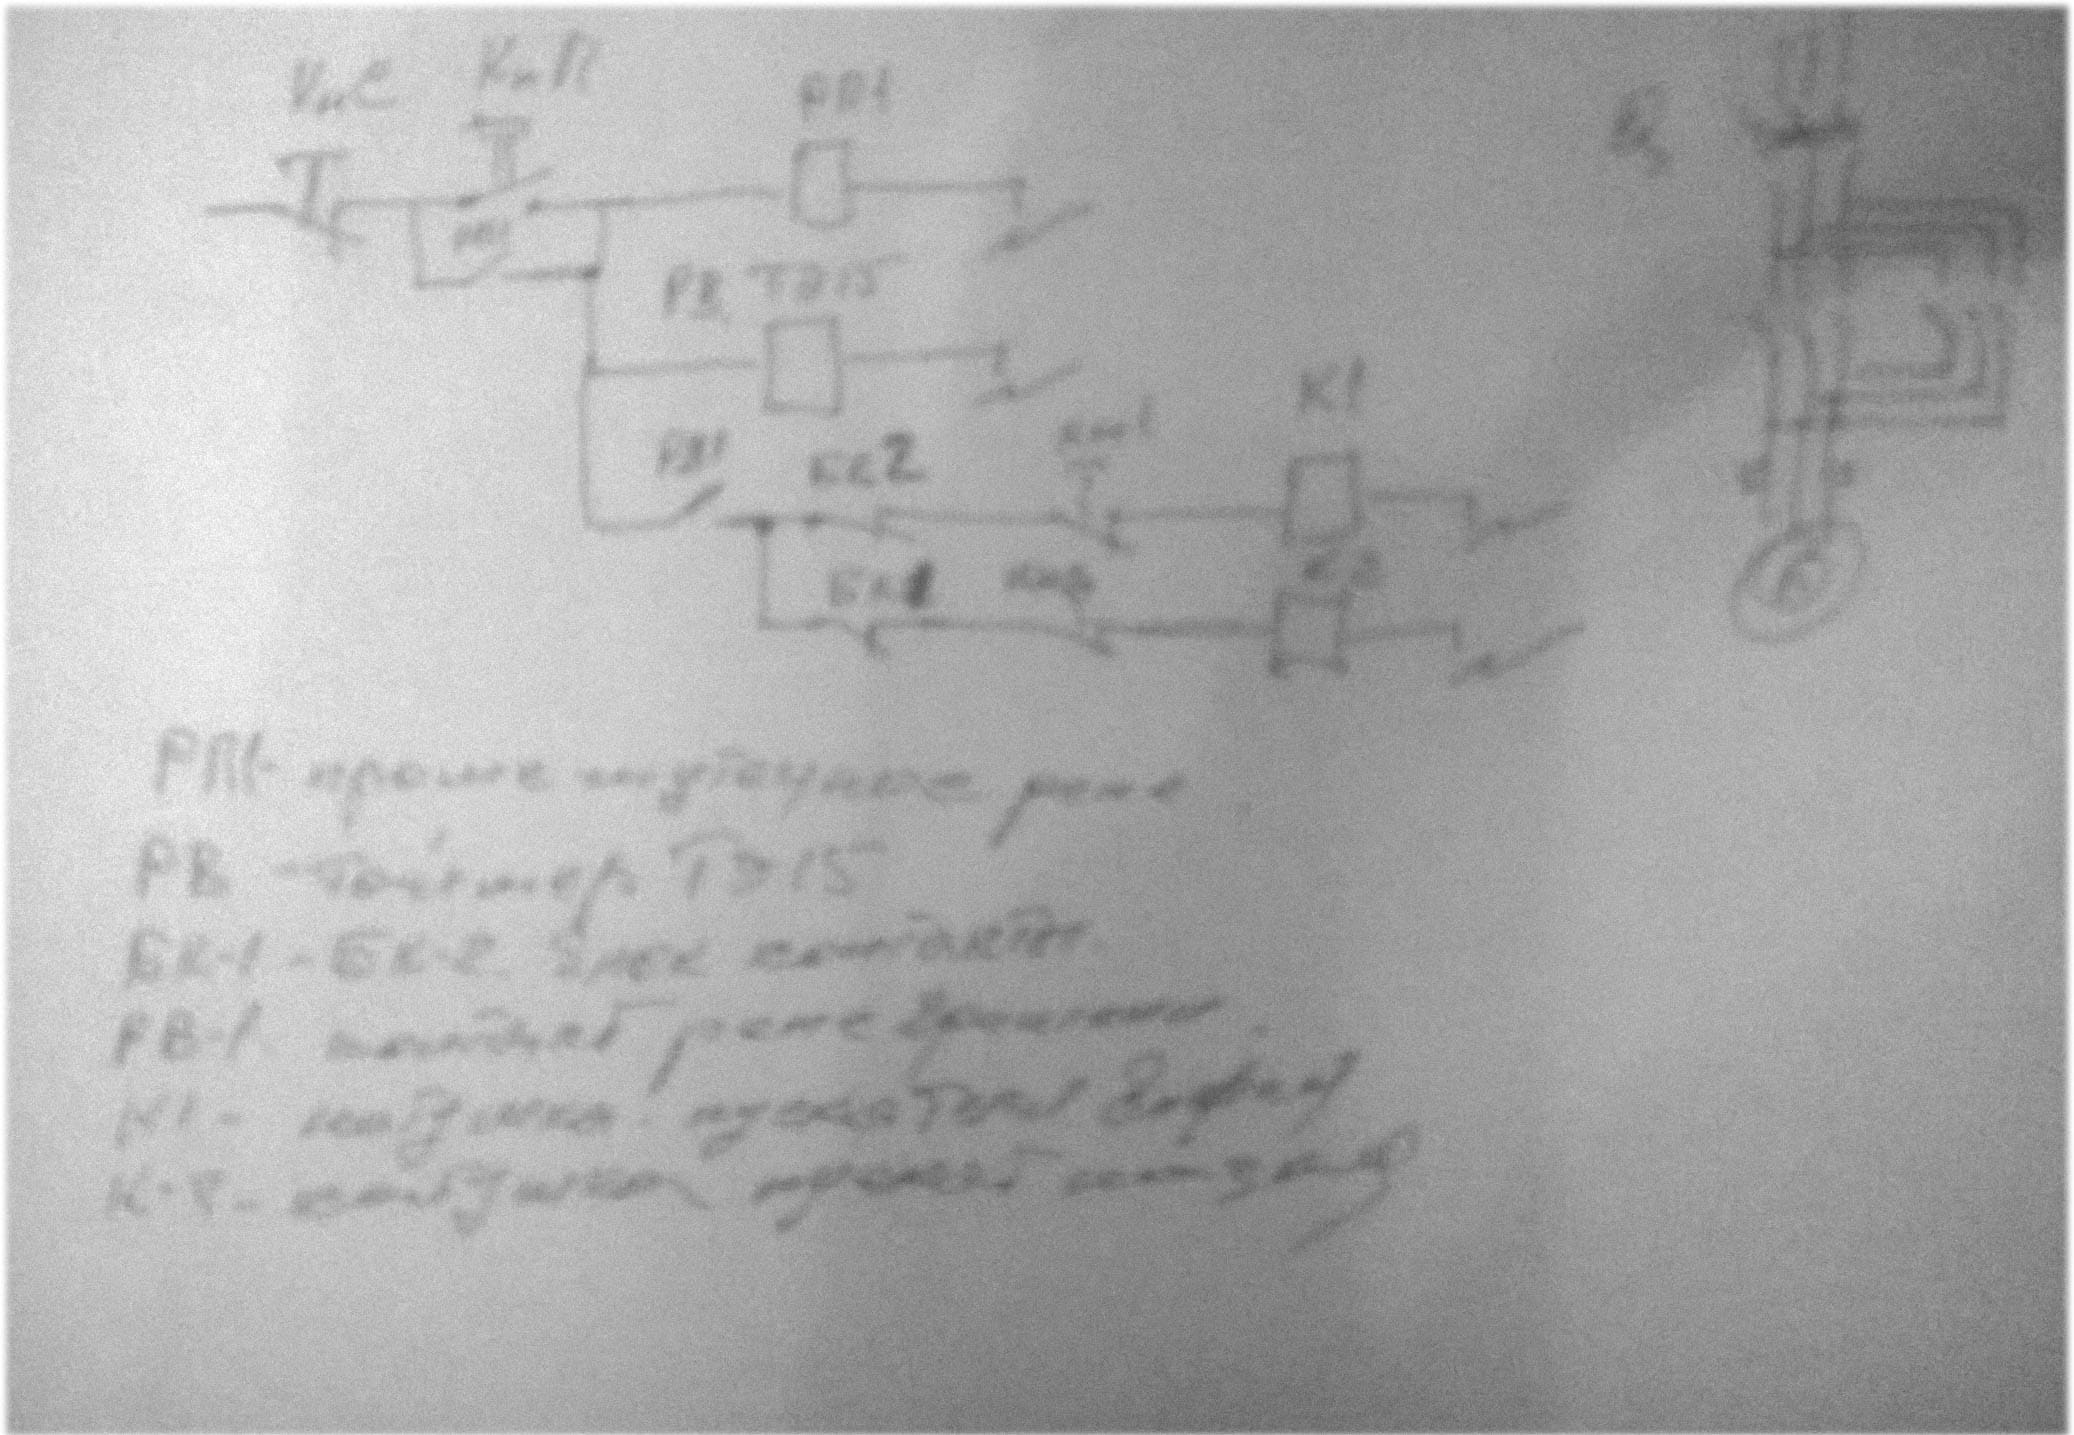 КнС КнП РП1
РП1
РВ ТЭ15
К1
РВ1 БК2 Кн1
БК1 К2
РП1- промежуточное реле
РВ - таймер ТЭ15
БК-1 - БК-2. Блок контакты.
РВ-1. контакт реле времени.
К1 - катушка пускателя
К-2 - катушка